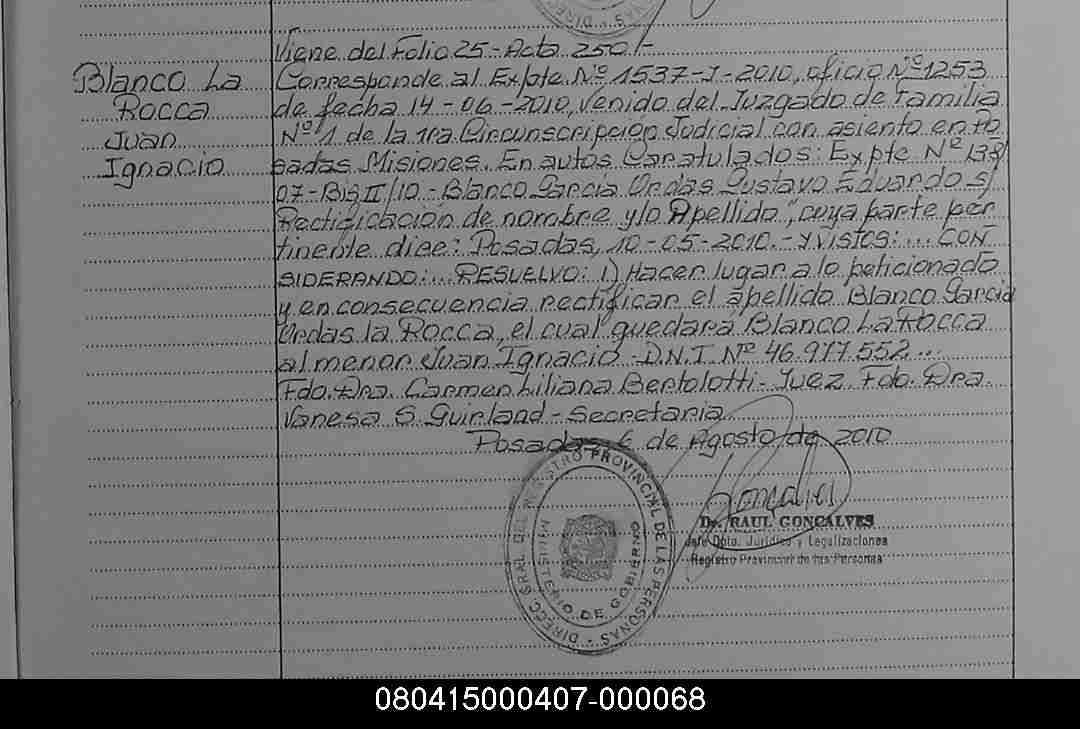 Viene del Folio 25-Acta 250/-
Blanco La
Rocca
Juan
Ignacio
Corresponde al Expte. Nº 1537-J-2010, oficio Nº 1253
de fecha 14-06-2010, venido del Juzgado de Familia
Nº 1 de la 1ra. Circunscripción Judicial con asiento en Po
sadas Misiones. En autos Caratulados: Expte Nº 138/
07-Bis II/10-Blanco Garcia Ordas Gustavo Eduardo s/
Rectificacion de nombre y/o Apellido", cuya parte per
tinente dice: Posadas, 10-05-2010.-Y VISTOS:... CON
SIDERANDO:... RESUELVO: 1) Hacer lugar a lo peticionado
y en consecuencia rectificar el apellido Blanco Garcia
Ordas la Rocca, el cual quedara Blanco La Rocca
al menor Juan Ignacio-D.N.I. Nº 46.977.552...
Fdo. Dra. Carmen Liliana Bertolotti-Juez. Fdo. Dra.
Vanesa S. Guirland-Secretaria
Posadas, 6 de Agosto de 2010
DIRECC. GRAL. DEL REGISTRO PROVINCIAL DE LAS PERSONAS
MINISTERIO DE GOBIERNO
Goncalves
Dr. RAUL GONCALVES
Jefe Dpto. Jurídico y Legalizaciones
Registro Provincial de las Personas
080415000407-000068